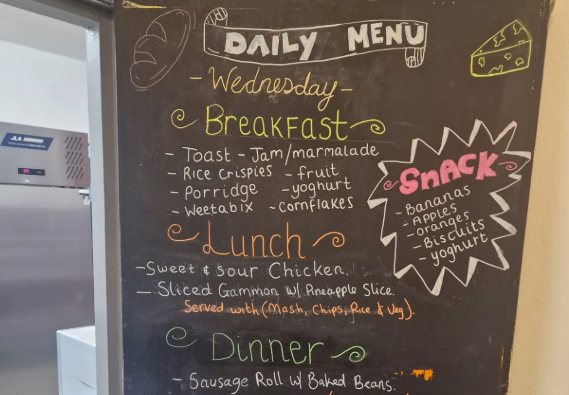 DAILY MENU
- Wednesday -
BREAKFAST
- Toast - Jam/marmalade
- Rice crispies - fruit
- Porridge - yoghurt
- Weetabix - cornflakes
SNACK
- Bananas
- Apples
- oranges
- Biscuits
- yoghurt
Lunch
- Sweet & sour Chicken.
- Sliced Gammon W/ Pineapple Slice.
Served with (Mash, Chips, Rice & Veg).
Dinner
- Sausage Roll W/ Baked Beans.
JLA